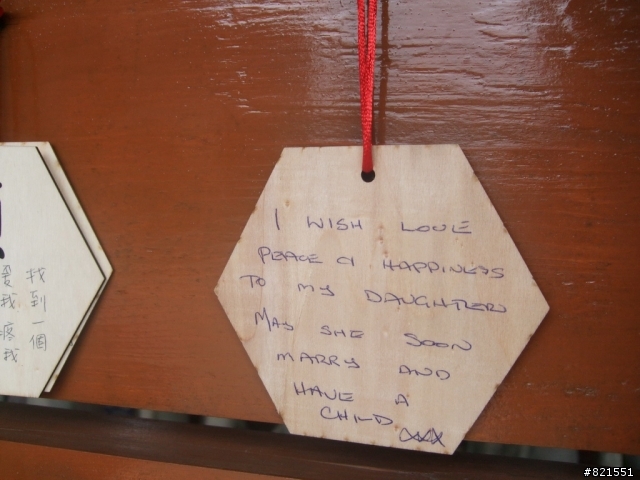 I WISH LOVE
PEACE & HAPPINESS
TO MY DAUGHTER
MAY SHE SOON
MARRY AND
HAVE A
CHILD XXX
找到一個
愛我
疼我
#821551